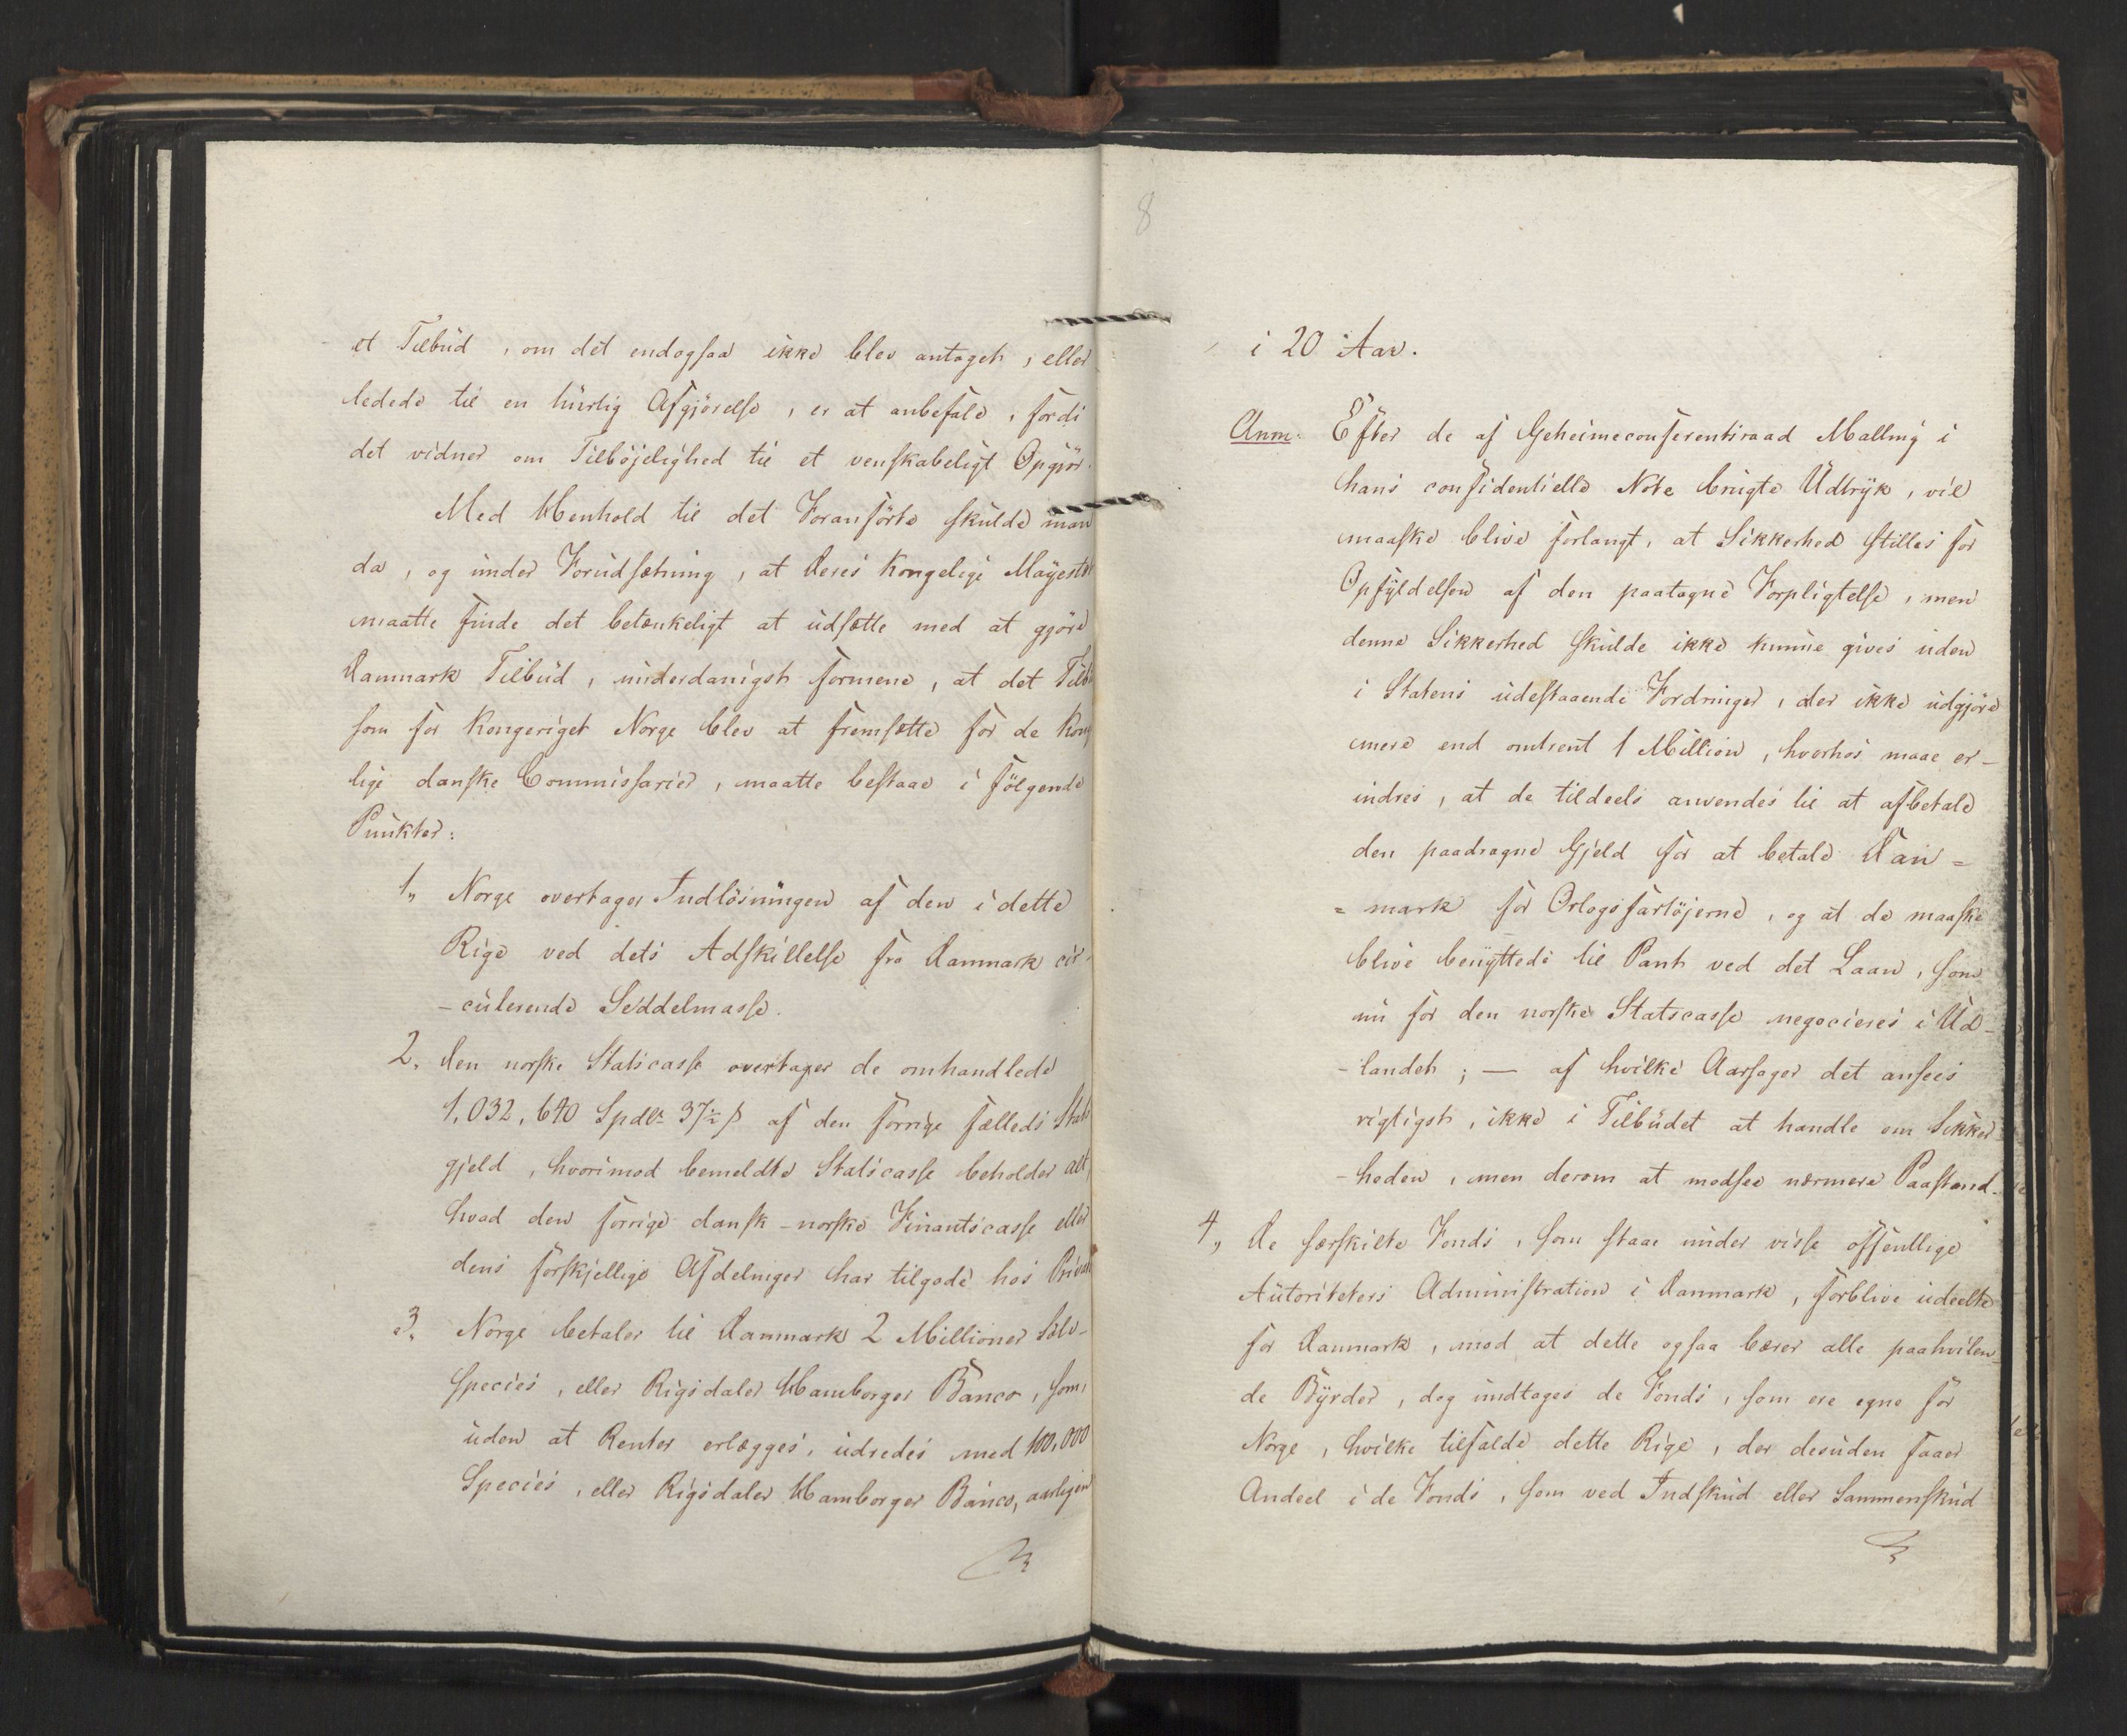 et Tilbud, om det endogsaa ikke blev antaget, eller
ledede til en hurtig Afgjörelse, er at anbefale, fordi
det vidner om Tilböjelighed til et venskabeligt Opgjör.
Med Henhold til det Foranförte skulde man
da, og under Forudsætning, at Deres Kongelige Mayestæt
maatte finde det betænkeligt at udsætte med at gjöre
Danmark Tilbud, underdanigst formene, at det Tilb
som for Kongeriget Norge blev at fremsætte for de Kong
lige danske Commissarier, maatte bestaae i fölgende
Punkter:
1, Norge overtager Indlösningen af den i dette
Rige ved dets Adskillelse fra Danmark cir-
-culerende Seddelmasse.
2, Den norske Statscasse overtager de omhandlede
1,032,640 Spdlr 37½ ß af den forrige fælleds Stats
gjeld, hvorimod bemeldte Statscasse beholder alt,
hvad den forrige dansk-norske Finantscasse eller
dens forskjellige Afdelninger har tilgode hos Privat
3, Norge betaler til Danmark 2 Millioner Sölv-
species, eller Rigsdaler Hamborger Banco, som,
uden at Renter erlægges, udredes med 100,000
Species, eller Rigsdaler Hamborger Banco, aarligen
8
i 20 Aar.
Anm: Efter de af Geheimeconferentsraad Malling i
hans confidentielle Note brugte Udtryk, vil
maaske blive forlangt, at Sikkerhed stilles for
Opfyldelsen af den paatagne Forpligtelse, men
denne Sikkerhed skulde ikke kunne gives uden
i Statens udestaaende Fordringer, der ikke udgjöre
mere end omtrent 1 Million, hvorhos maae er-
indres, at de tildeels anvendes til at afbetale
den paadragne Gjeld for at betale Dan=
=mark for Orlogsfartöjerne, og at de maaske
blive benyttede til Pant ved det Laan, som
nu for den norske Statscasse negocieres i Ud-
-landet; — af hvilke Aarsager det ansees
rigtigst, ikke i Tilbudet at handle om Sikker
-heden, men derom at modsee nærmere Paastand.
4, De særskilte Fonds, som staae under visse offentlige
Autoriteters Administration i Danmark, forblive udeelte
for Danmark, mod at dette ogsaa bærer alle paahvilen-
de Byrder, dog undtages de Fonds, som ere egne for
Norge, hvilke tilfalde dette Rige, der desuden faaer
Andeel i de Fonds, som ved Indskud eller Sammenskud